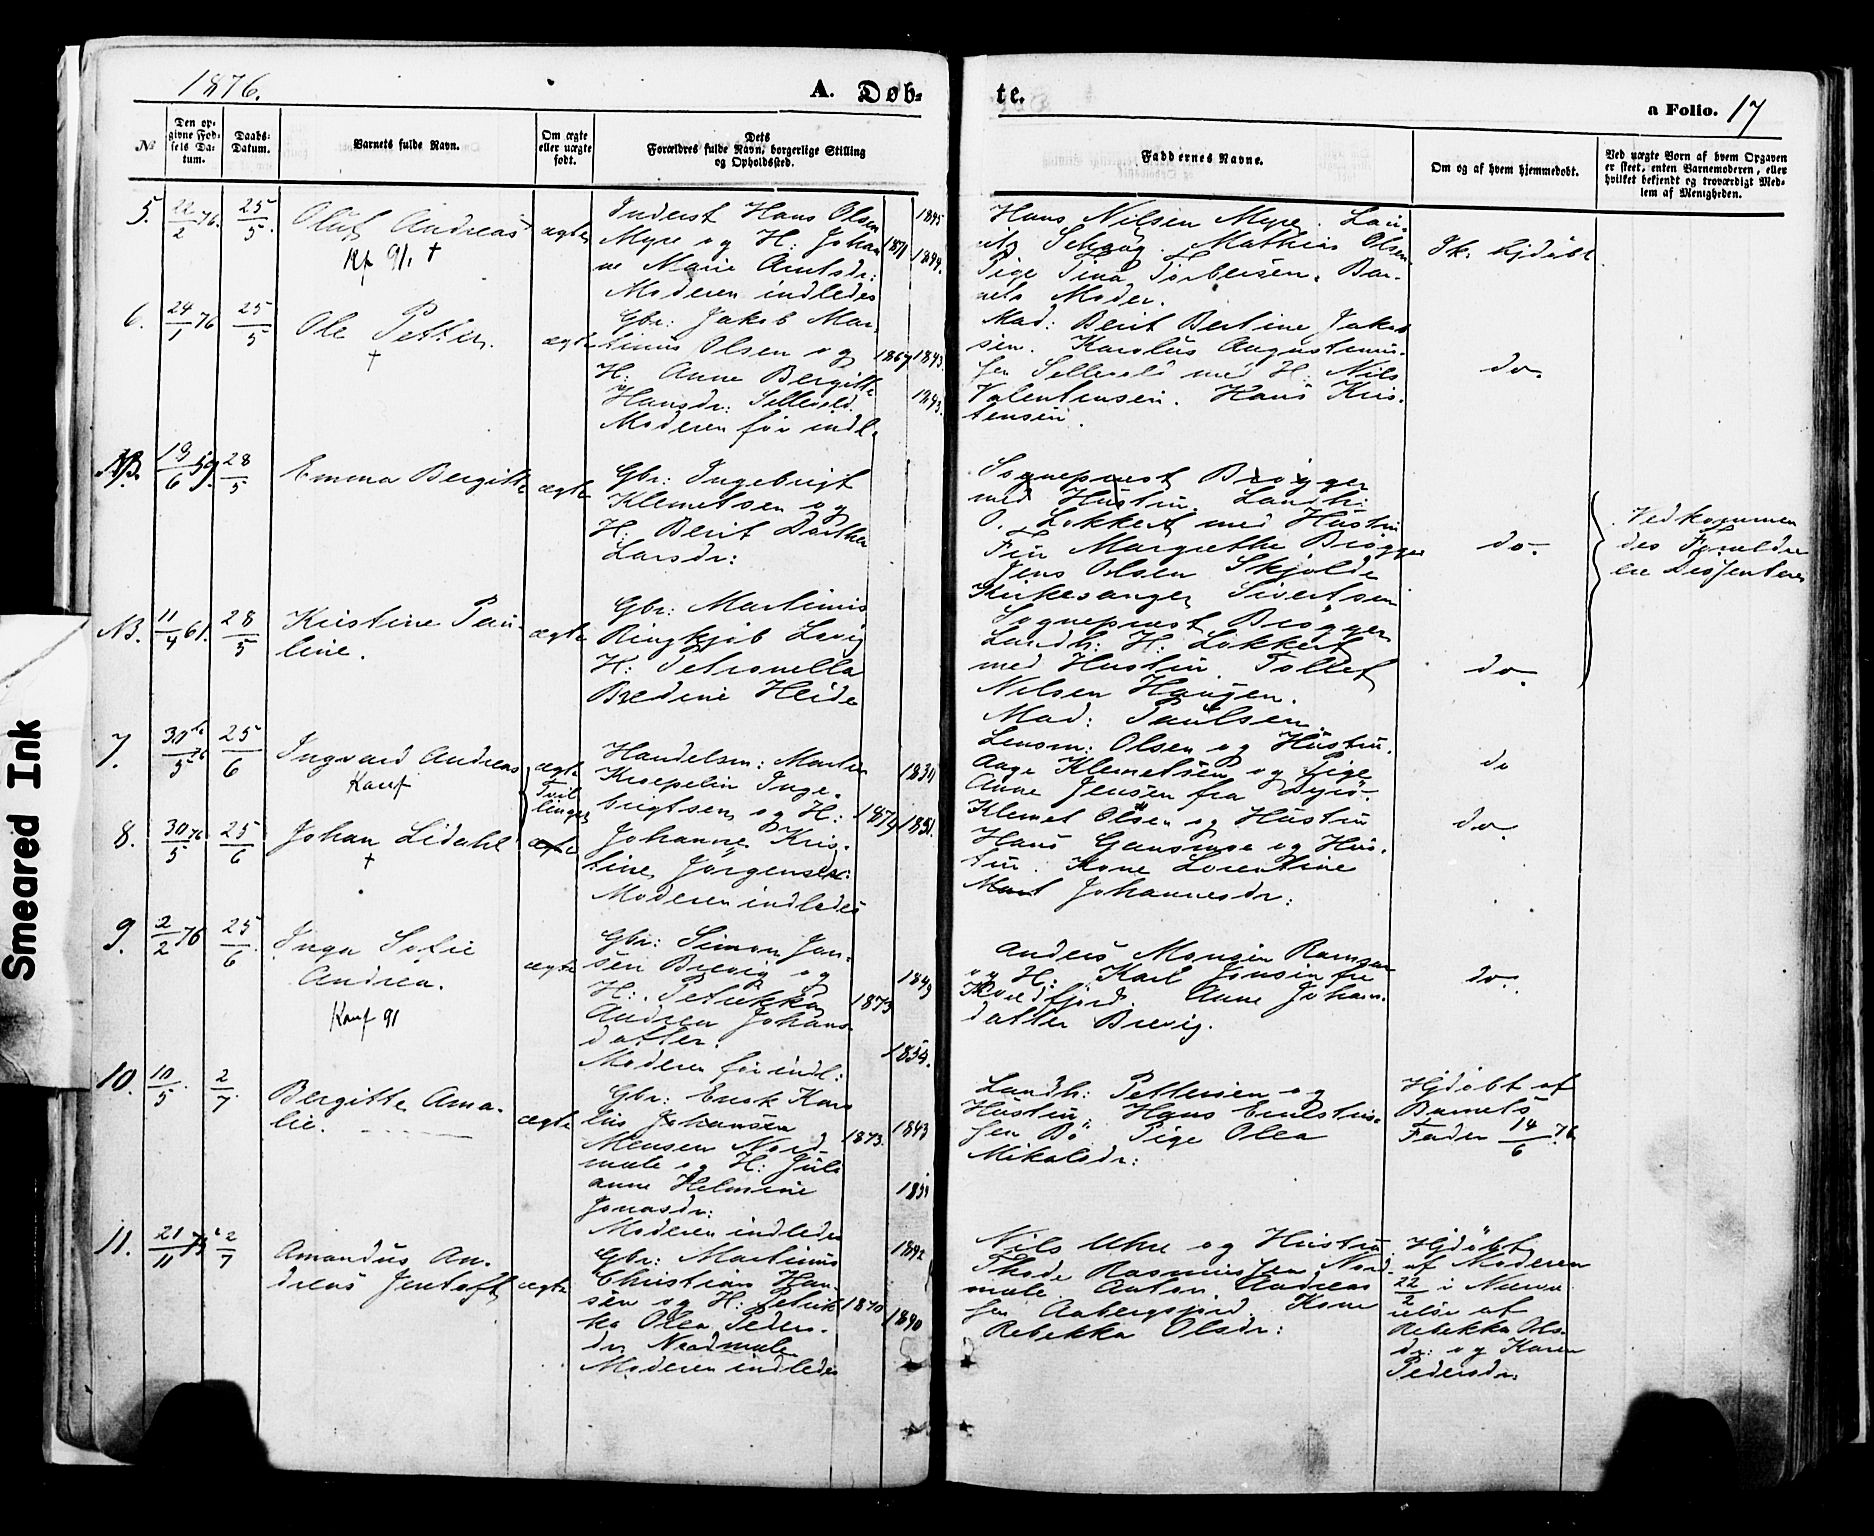 1876.
A. Døb-
te.
a Folio. 17
№
Den op-
givne Fød-
sels Da-
tum.
Daabs-
Datum.
Barnets fulde Navn.
Om ægte
eller uægte
født.
Dets
Forældres fulde Navn, borgerlige Stilling
og Opholdssted.
Faddernes Navne.
Om og af hvem hjemmedøbt.
Ved uægte Børn af hvem Opgaven
er skeet, enten Barnemoderen, eller
hvilket bekjendt og troværdigt Med-
lem af Menigheden.
5.
22/2 76.
25/5.
Oluf Andreas
Kf 91. †
ægte
Inderst Hans Olsen
Myre og H: Johan
ne Marie
Moderen indledes
1871
1845
1844.
Hans Nilsen Myre. Lau-
Mathias Olsen
Pige Tina Torbersen. Bar-
nets Moder.
Ik. hjdøbt.
6.
24/1 76
25/5
Ole Petter.
†
ægte
Gbr: Jakob Mar-
tinus Olsen og
H: Anne Bergitte
Hansdr: Sellevold.
Moderen før indl.
1867
1843.
1843.
Mad: Berit Bertine Jakob
sen. Karolus Augustinus-
sen Sellevold med H: Nils
Valentinsen. Hans Kris-
tensen.
do.
NB.
19/6 59.
28/5
Emma Bergitte
ægte
Gbr: Ingebrigt
Klemetsen og
H: Berit Dorthea
Larsdr:
Sognepræst Brøgger
med Hustru. Landh:
O. Lokkert med Hustru
Frü Margrethe Brøgger
Jens Olsen Skjolde
Kirkesanger Sivertsen
do.
Vedkommen
des Forældre
ere Dissentere
NB.
11/4 61.
28/5
Kristine Pau-
line.
ægte
Gbr: Martinus
Ringkjøb Lovig
H: Petronella
Bredine Heide
Sognepræst Brøgger
Landh: H: Lokkert
med Hustru. Tollef
Nilsen Haugen.
Mad: Paulsen.
do.
7.
30/5 76
25/6
Ingvard Andreas
Konf
ægte
Tvil
linger
Handelsm: Morten
Kroepelin Inge-
brigtsen og H:
1874
1834
1851.
Lensm: Olsen og Hustru.
Aage Klemetsen og Pige
Anne Jensen fra Dyrö.
do
8.
30/5 76
25/6
Johan Lidahl
†
ægte
Johanne Kris-
tine Jørgensdr:
Moderen indledes
Klemet Olsen og Hustru
Hans Gansmoe og Hus-
tru. Kone Lorentine
Johannesdr:
do.
9.
2/2 76
25/6.
Inga Sofie
Andrea.
Konf 91
ægte
Gbr: Simon Jan-
sen Brevig og
H: Petrikka
Andrea Johans-
datter.
Moderen før indl:
1873
1849
1854.
Anders Monsen Ramsaa
og H: Karl Jonsen fra
Kvedfjord. Anne Johans-
datter Brevig.
do.
10.
10/5.
2/7.
Bergitte Ama-
lie.
ægte
Gbr: Enok Kor
lius Johansen
Mensen Nord
mæle og H: Juli
anne Helmine
Jonasdr:
Moderen indledes
1873.
1843
1851
Landh: Pettersen og
Hustru. Hans
sen Bö. Pige Olea
Mikalsdr:
Hjdøbt af
Barnets
Fader 14/6 76
11.
21/11 75
2/7
Amandus An-
dreas Jentoft
ægte
Gbr: Martinus
Christian Han-
sen og H: Petrik
ka Olea Peders-
dr Nordmæle
Moderen indledes
1870
1842
1840
Nils Uhre og Hustru.
Thode Rasmussen Nord-
mæle. Anton Andreas
sen Aabergsjord. Kone
Rebekka Olsdr:
Hjdøbt
af Moderen
22/2 i Nærvæ
relse af
Rebekka Ols-
dr: og Karen
Pedersdr:
Smeared Ink